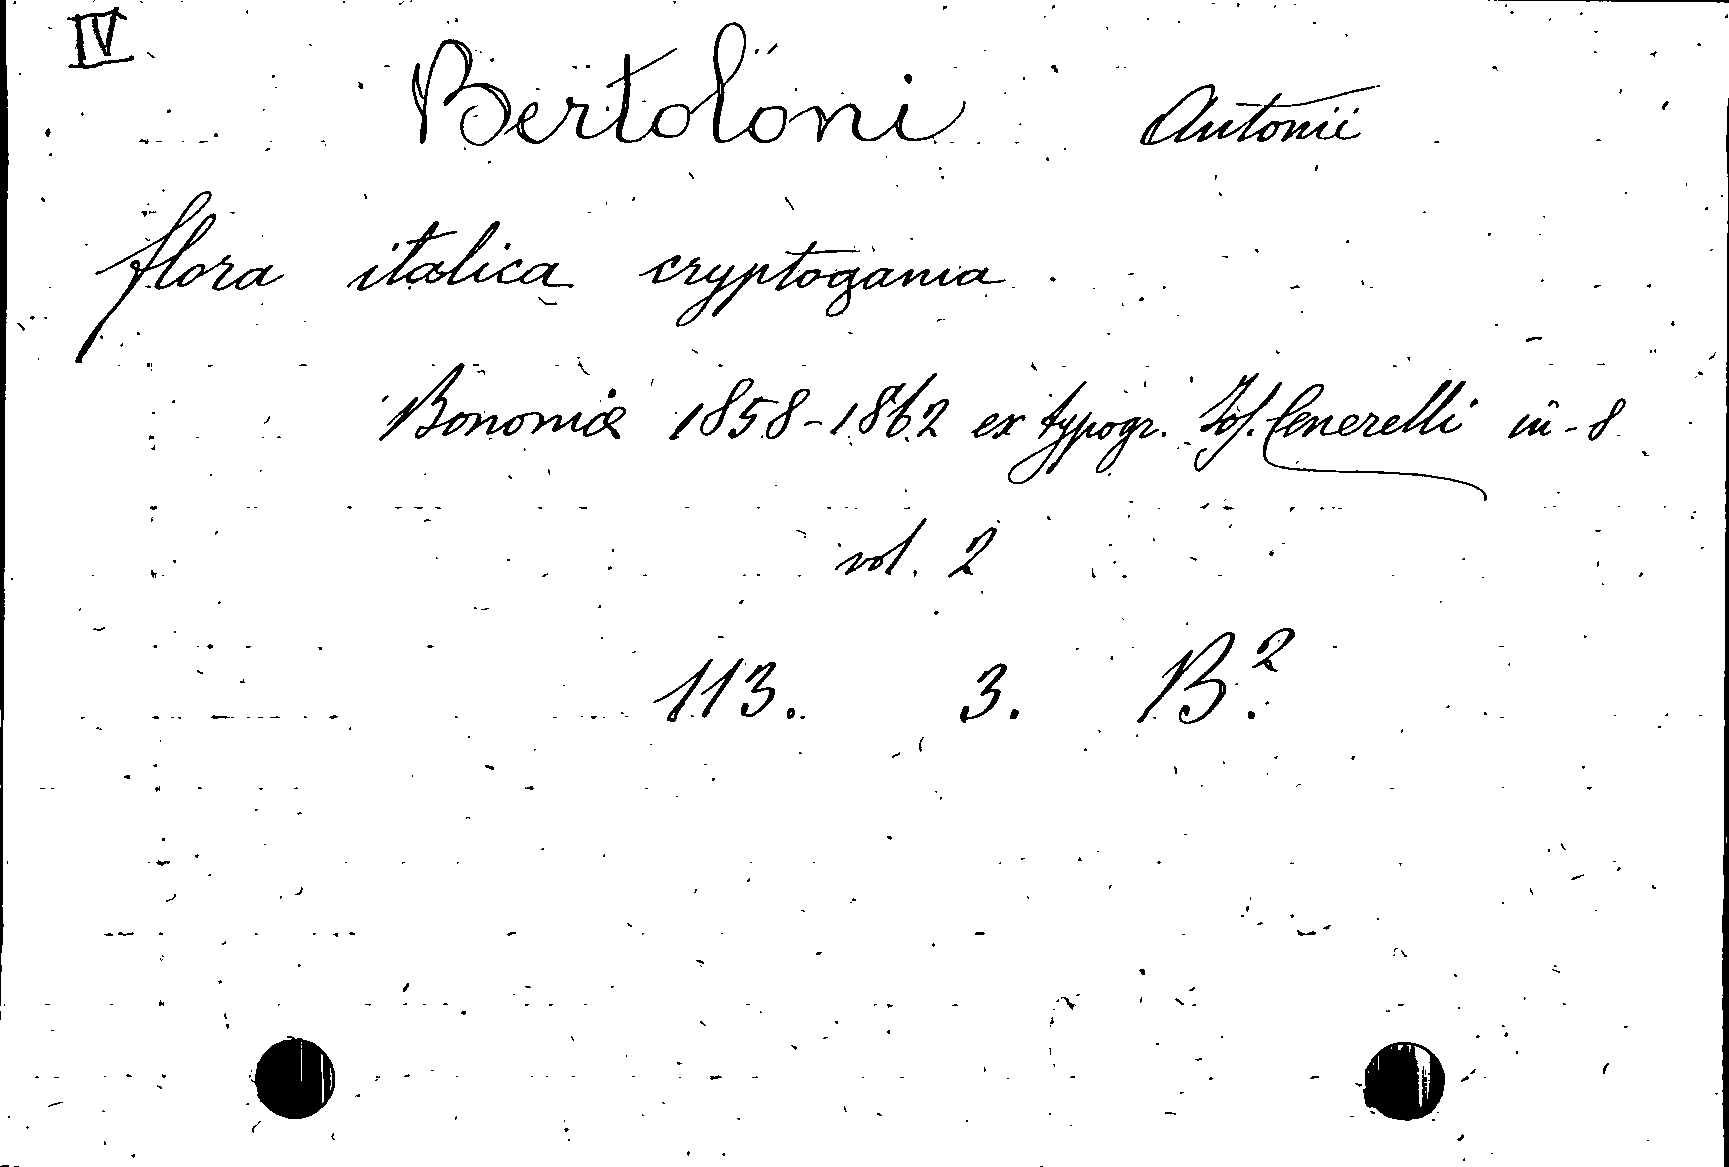 IV
Bertoloni Antonii
flora italica cryptogania
Bononiæ 1858-1862 ex typogr. Jos. Cenerelli in-8
vol. 2
113. 3. B.²